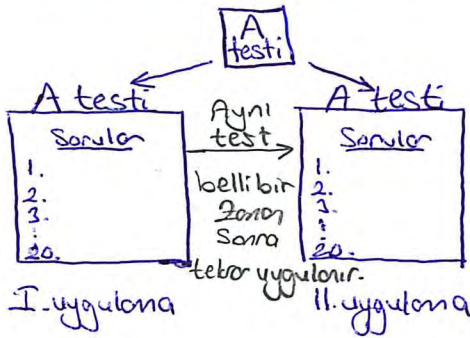 A
testi
A testi
Sorular
1.
2.
3.
:
20.
I. uygulama
Aynı
test
belli bir
Zaman
Sonra
tekrar uygulanır.
A testi
Sorular
1.
2.
3.
:
20.
II. uygulama